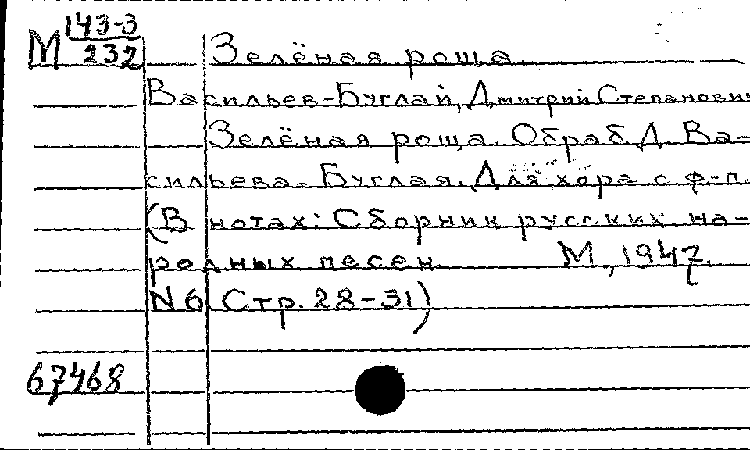 М 143-3
232
Зелёная роща.
Васильев-Буглай, Дмитрий Степанович
Зелёная роща. Обраб. Д. Ва-
сильева-Буглая. Для хора с ф-п.
(В нотах: Сборник русских на-
родных песен. М., 1947.
N 6 Стр. 28-31)
67468